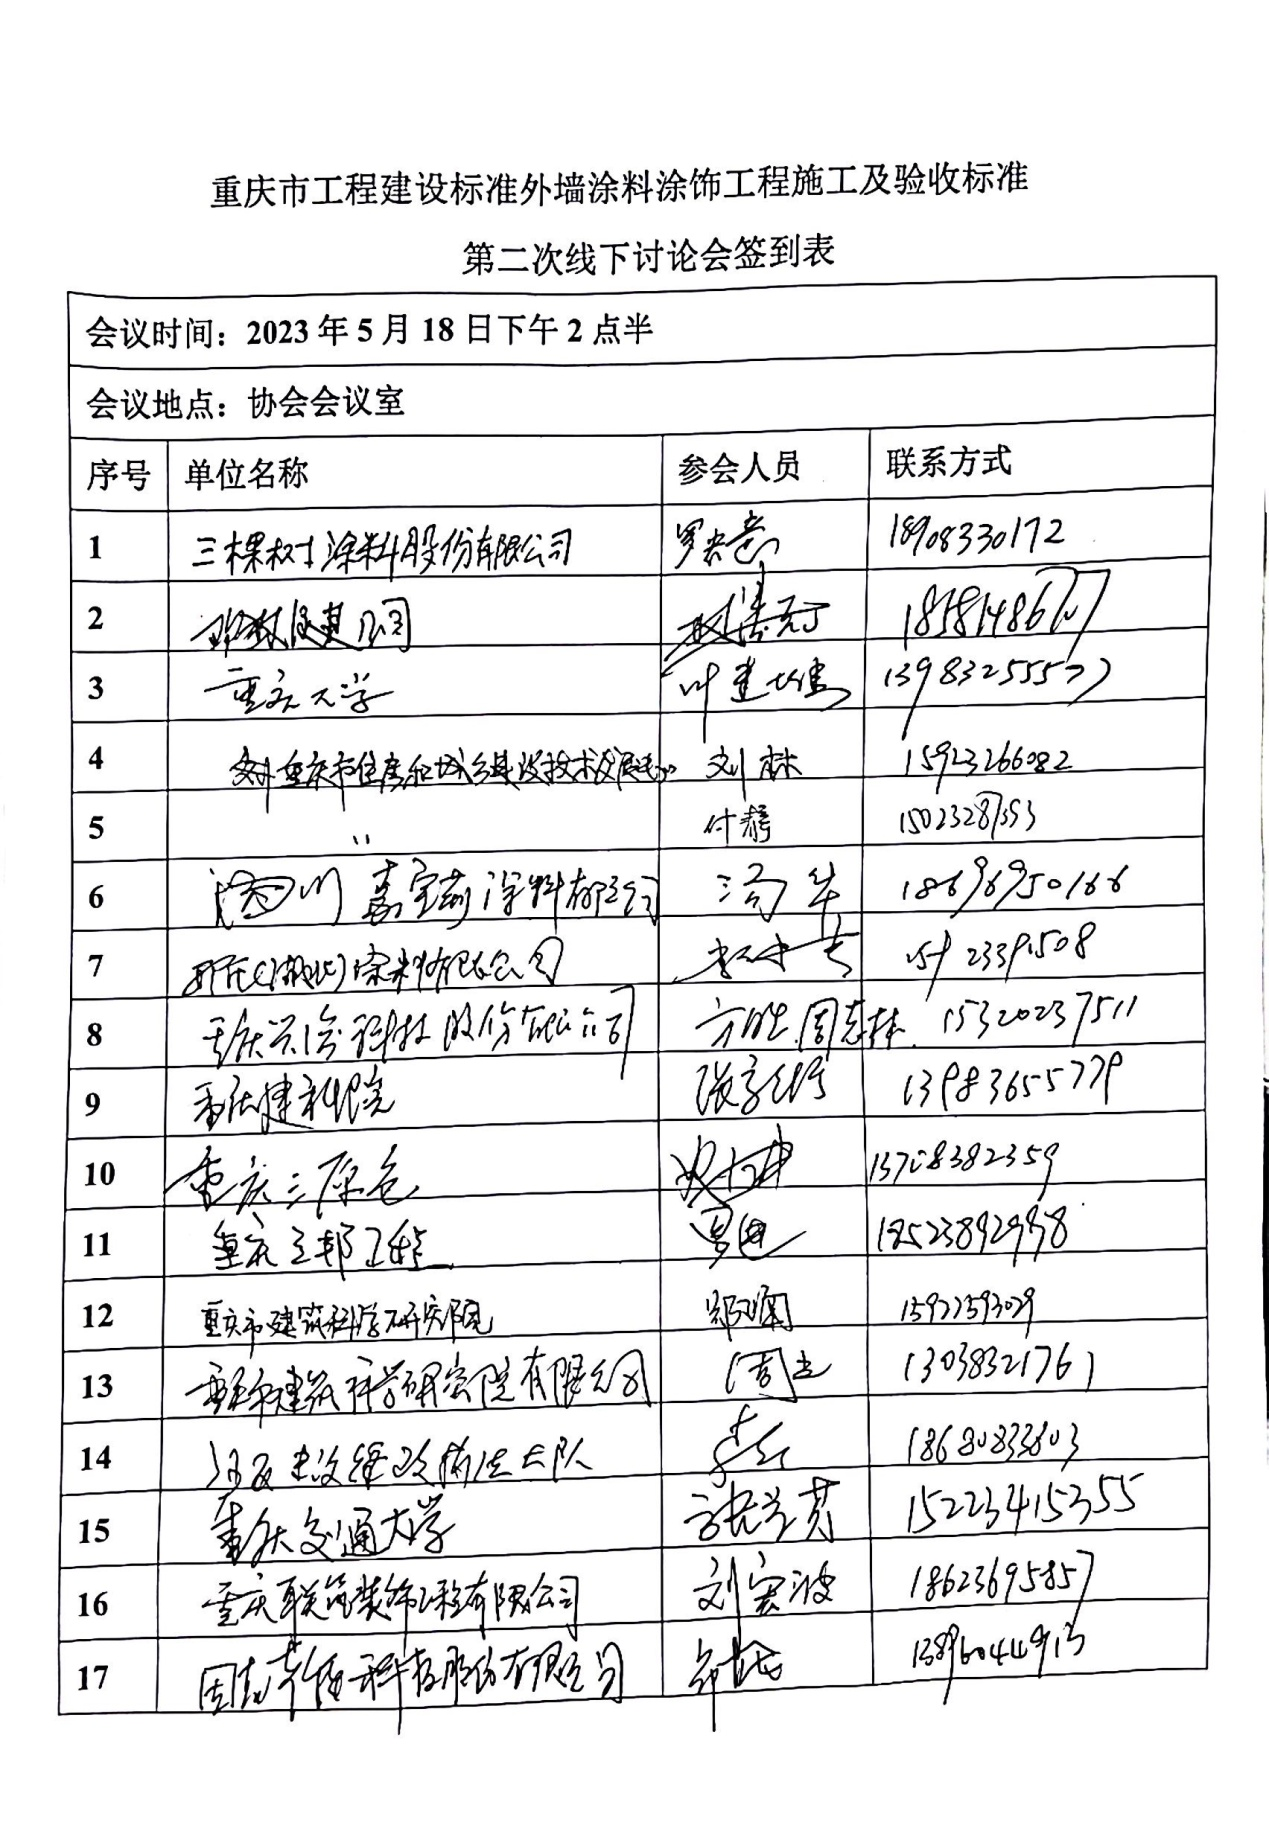 重庆市工程建设标准外墙涂料涂饰工程施工及验收标准
第二次线下讨论会签到表
会议时间：2023年5月18日下午2点半
会议地点：协会会议室
序号 单位名称 参会人员 联系方式
1 三棵树涂料股份有限公司 18908330172
2
3 重庆大学 叶建雄 13983255577
4 重庆市住房和城乡建设技术发展中心 刘林 15923266082
5 〃 付静
6 嘉宝莉涂料有限公司 冯华 18696950166
7 涂料有限公司
8 重庆兴渝科技股份有限公司 方胜 周志林 15320237511
9 重庆建科院 13983655779
10 重庆三原色 13708382359
11 重庆立邦工程 18523892998
12 重庆市建筑科学研究院 15922593029
13 重庆市建筑科学研究院有限公司 13038321761
14 大队 18680833803
15 重庆交通大学 15223415355
16 重庆联筑装饰工程有限公司 刘宏波 18623695857
17 固克节能科技股份有限公司 13896044913